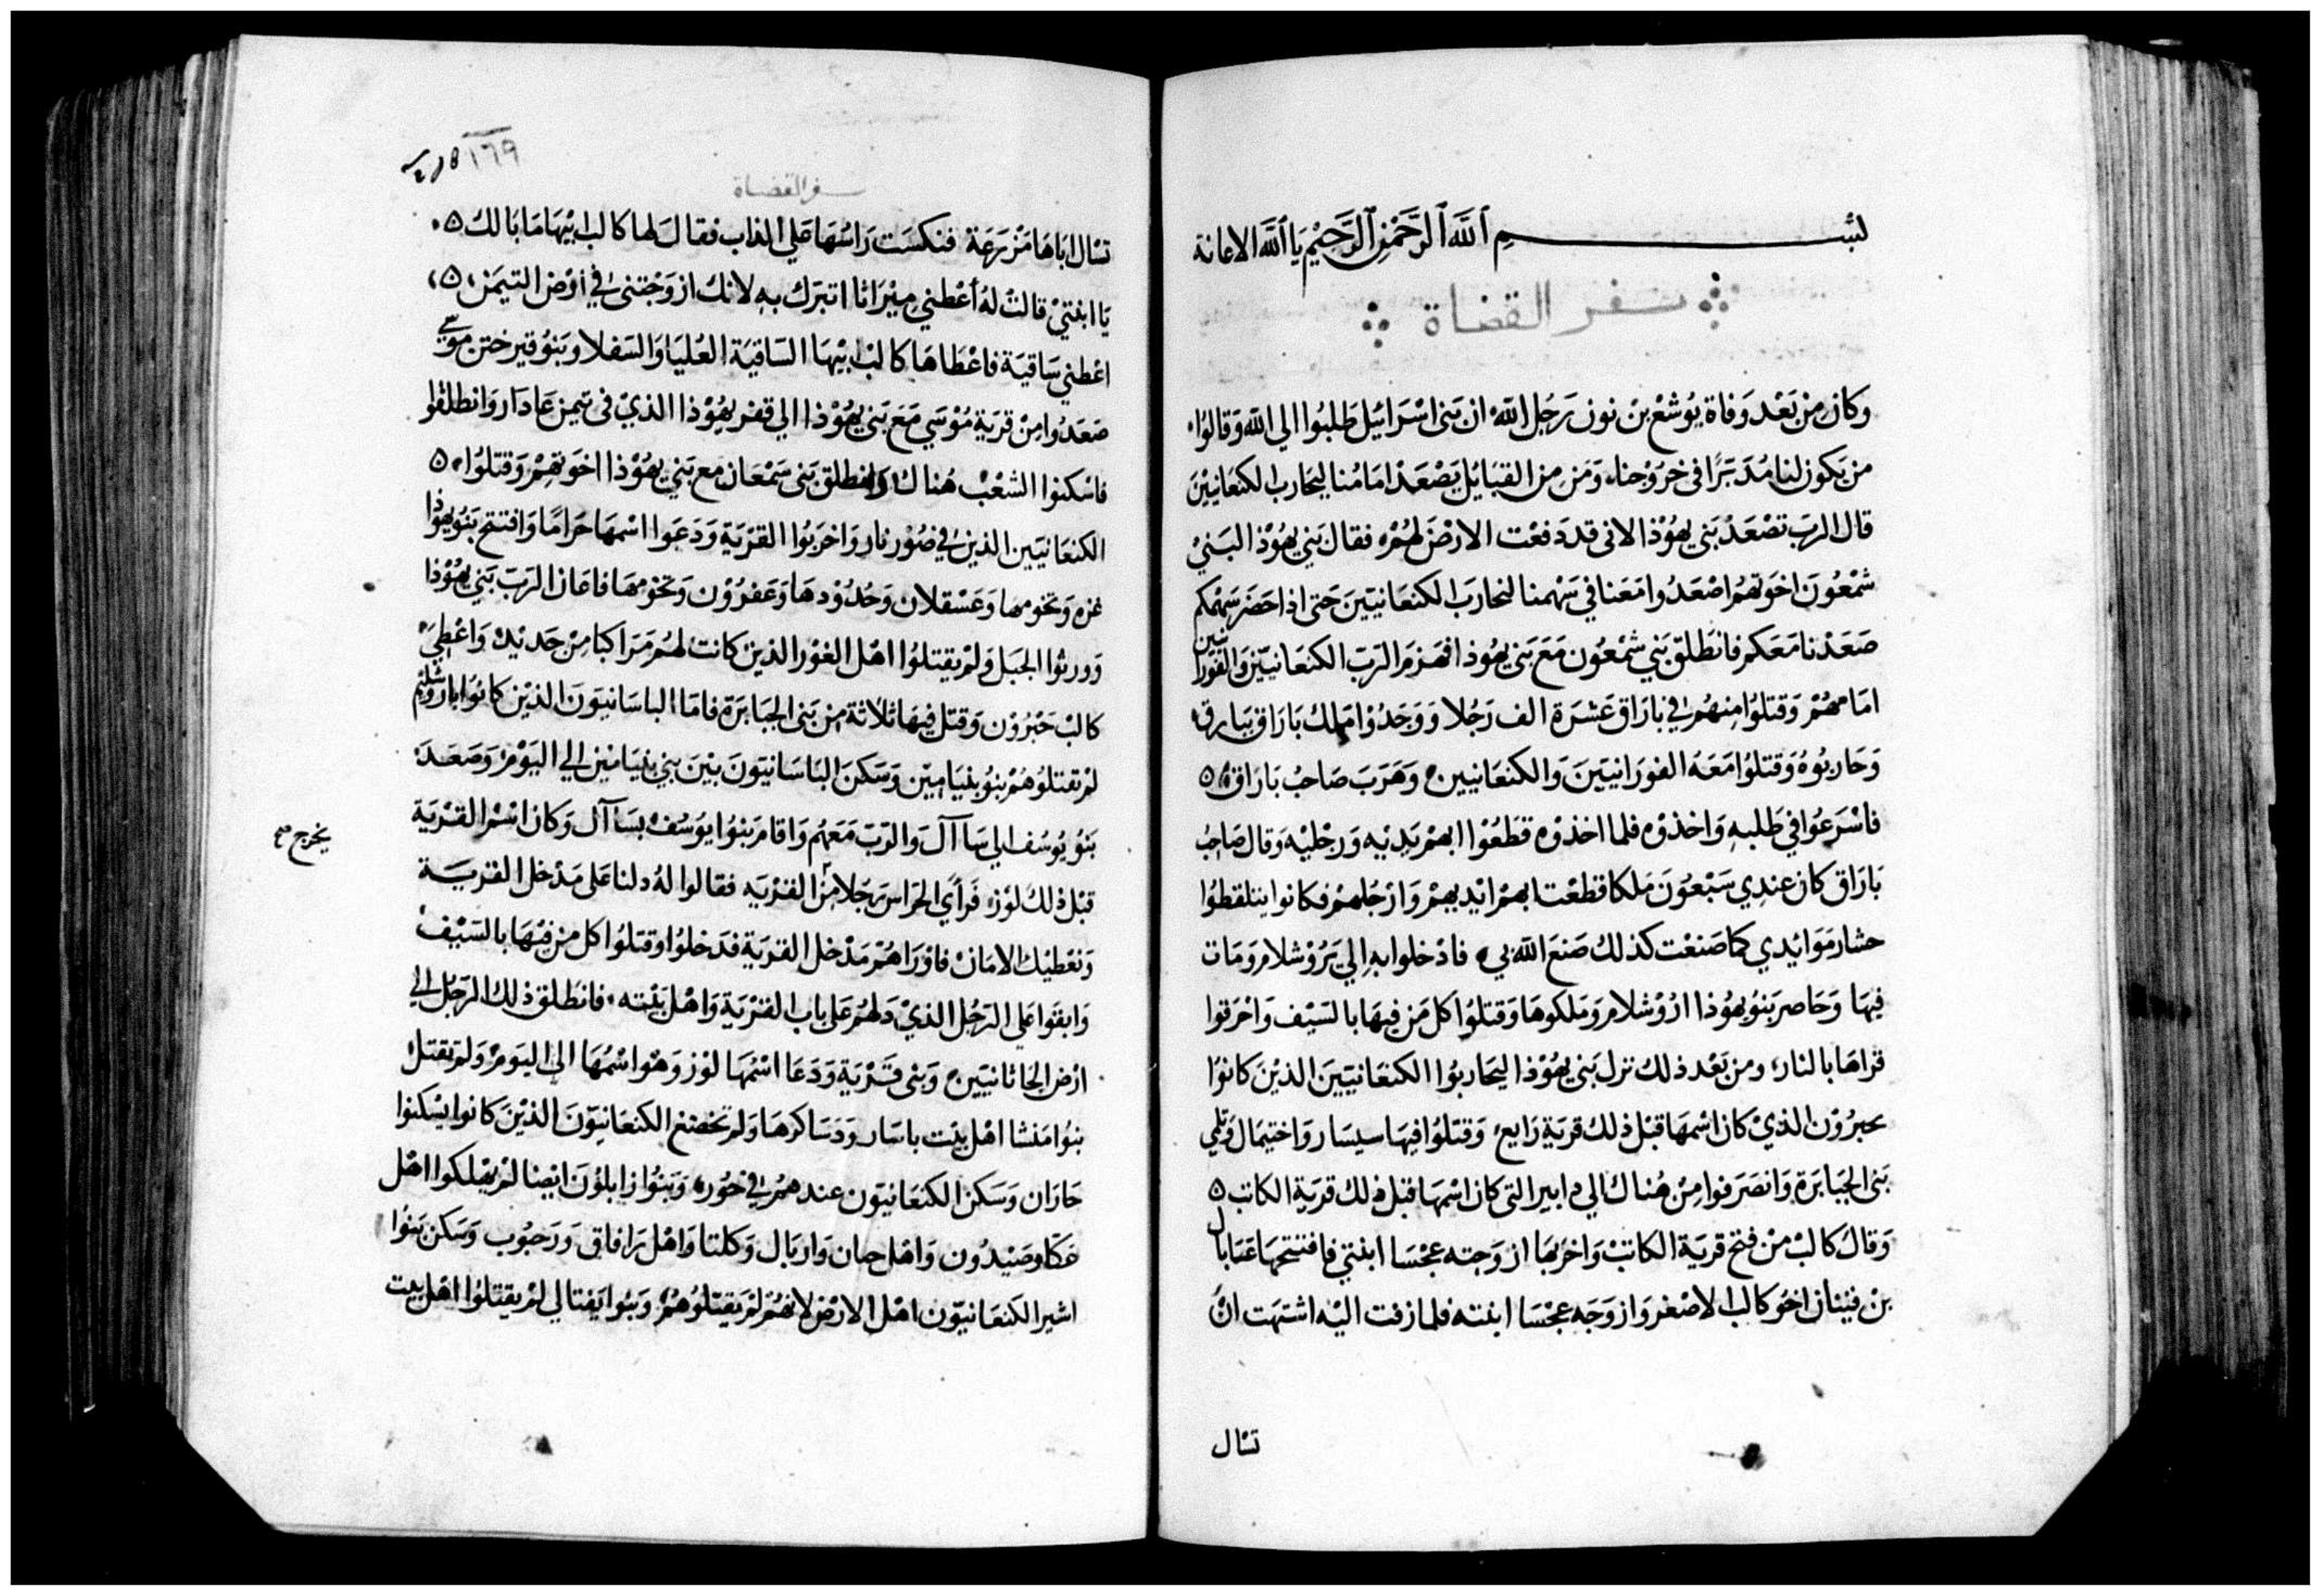 بسم الله الرحمن الرحيم يا الله الاعانة
سفر القضاة
وكان من بعد وفاة يوشع بن نون رجل الله ان بنى اسرائيل طلبوا الي الله وقالوا
من يكون لنا مدبرًا فى خروجنا ومن من القبايل يصعد امامنا ليحارب الكنعانيين
قال الرب تصعد بنى يهوذا لانى قد دفعت الارض لهم فقال بني يهوذ البني
شمعون اخوتهم اصعدوا معنا في سهمنا لنحارب الكنعانيين حتى اذا حضر سهمكم
صعدنا معكم فانطلق بني شمعون مع بنى يهوذا فهزم الرب الكنعانيين والفورانيين
امامهم وقتلوا منهم في بازاق عشرة الف رجلا ووجدوا ملك بازاق ببازق
وحاربوه وقتلوا معه الفورانيين والكنعانيين وهرب صاحب بازاق
فاسرعوا في طلبه واخذوه فلما اخذوه قطعوا ابهم يديه ورجليه وقال صاحب
بازاق كان عندي سبعون ملكا قطعت ابهم ايديهم وارجلهم فكانوا يتلقطوا
حشار موايدي كما صنعت كذلك صنع الله بي فادخلوا به الي يروشلام ومات
فيها وحاصر بنو يهوذا اروشلام وملكوها وقتلوا كل من فيها بالسيف واحرقوا
قراها بالنار ومن بعد ذلك نزل بني يهوذا ليحاربوا الكنعانيين الذين كانوا
بحبرون الذي كان اسمها قبل ذلك قرية رابع وقتلوا فيها سيسار واختيمال وتلمي
بنى الجبابرة وانصرفوا من هناك الي دابير التى كان اسمها قبل ذلك قرية الكاتب
وقال كالب من فتح قرية الكاتب واخربها ازوجته عجسا ابنتي فافتتحها عتبايل
بن فيناز اخو كالب الاصغر وازوجه عجسا ابنته فلما زفت اليه اشتهت ان
تسال
١٦٩
سفر القضاة
تسال اباها مزرعة فنكست راسها على الداب فقال لها كالب ابيها ما بالك
يا ابنتي قالت له أعطني ميراثا اتبرك به لانك ازوجتنى في أرض التيمن
اعطني ساقية فاعطاها كالب ابيها الساقية العليا والسفلا وبنو قير ختن موسي
صعدوا من قرية موسي مع بني يهوذا الي قفر يهوذا الذي فى تيمن عادار وانطلقوا
فاسكنوا الشعب هناك وانطلق بنى سمعان مع بني يهوذا اخوتهم وقتلوا
الكنعانيين الذين في صور فار واخربوا القرية ودعوا اسمها حراما وافتتح بنو يهوذا
غزه وتخومها وعسقلان وحدودها وعفرون وتخومها فاعان الرب بني يهوذا
وورثوا الجبل ولم يقتلوا اهل الغور الذين كانت لهم مراكبا من حديد واعطي
كالب حبرون وقتل فيها ثلاثة من بنى الجبابرة فاما الباسانيون الذين كانوا باروشليم
لم تقتلوهم بنو بنيامين وسكن الباسانيون بين بني بنيامين الي اليوم وصعد
بنو يوسف الي ساآل والرب معهم واقامر بنوا يوسف بساآل وكان اسم القرية
يخرج
قبل ذلك لوز فرأي الحراس رجلا من القريه فقالوا له دلنا على مدخل القرية
ونعطيك الامان فاوراهم مدخل القرية فدخلوا وقتلوا كل من فيها بالسيف
وابقوا علي الرجل الذي دلهم على باب القرية واهل بيته فانطلق ذلك الرجل الي
ارض الحاثانيين وبنى قرية ودعا اسمها لوز وهو اسمها الى اليوم ولم يقتل
بنوا منشا اهل بيت باسار ودساكرها ولم تخضع الكنعانيون الذين كانوا يسكنوا
حازان وسكن الكنعانيون عندهم في حور وبنوا زابلون ايضا لم يهلكوا اهل
عكا وصيدون واهل حان واربال وكلتا واهل رافاق ورحوب وسكن بنوا
اشير الكنعانيون اهل الارض لانهم لم يقتلوهم وبنوا يفتالي لم يقتلوا اهل بيت